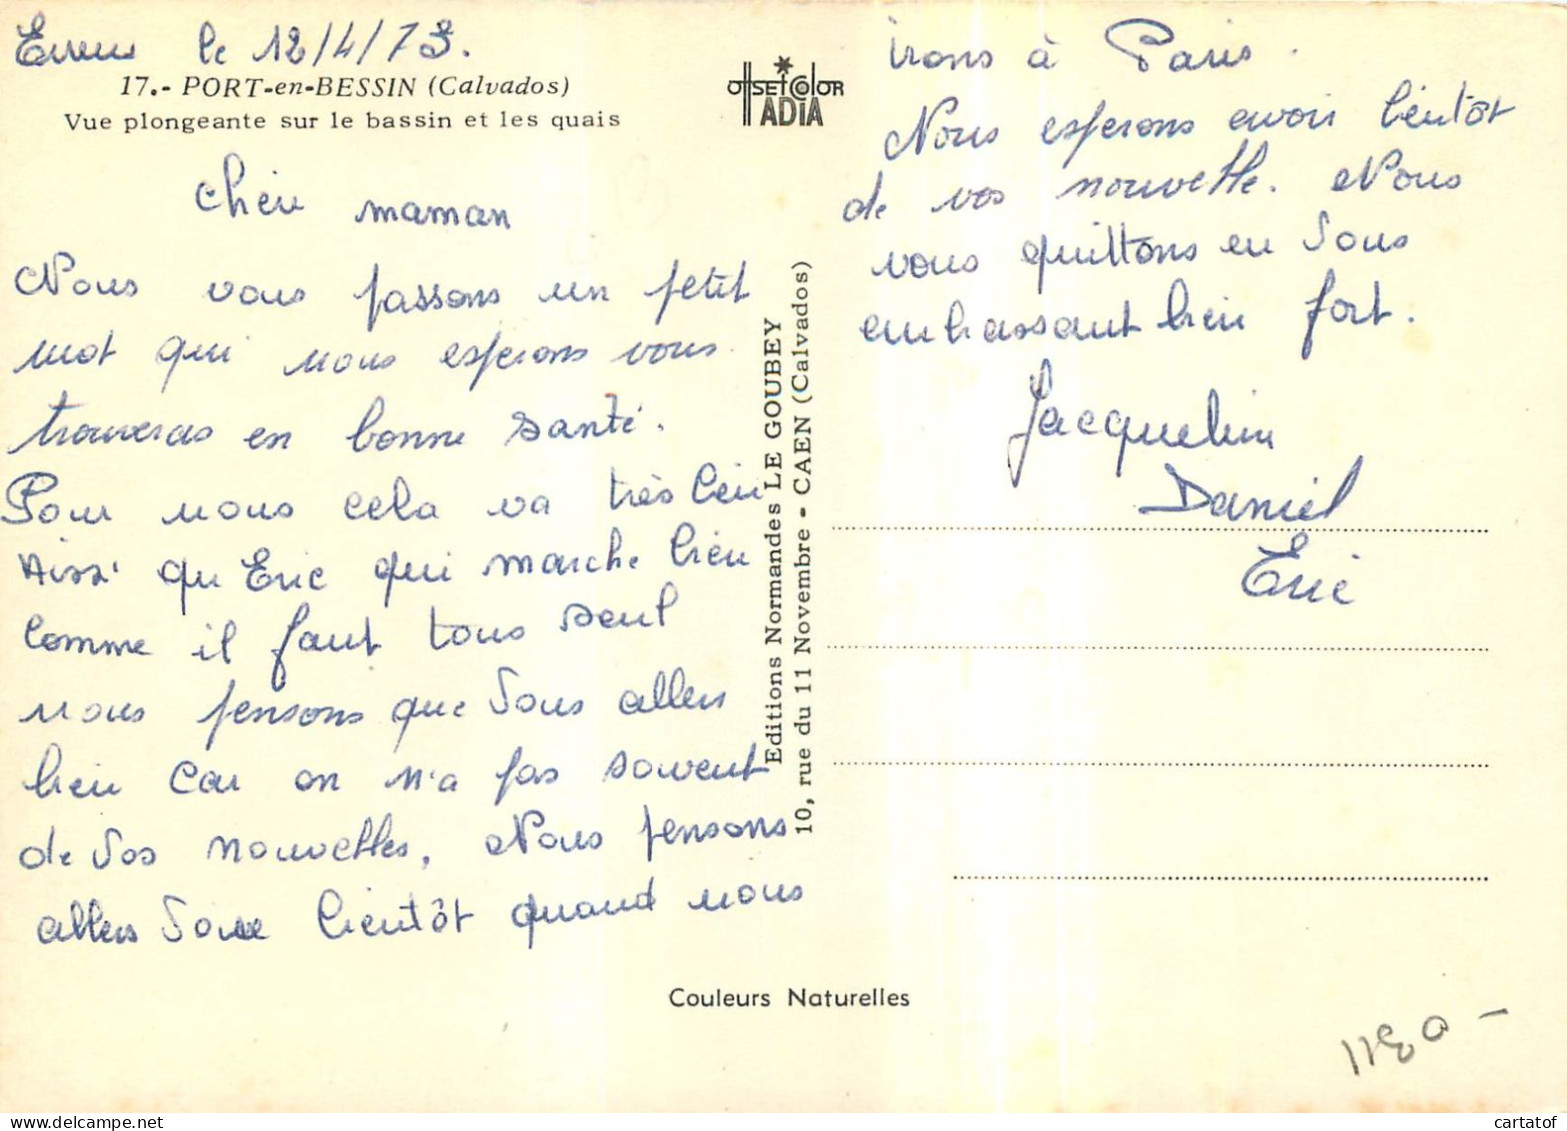 le 12/4/73.
17.- PORT-en-BESSIN (Calvados)
Vue plongeante sur le bassin et les quais
OffSEtColOR
ADIA
Chère maman
Nous vous passons un petit
mot qui nous esperons vous
trouveras en bonne santé.
Pour nous cela va très bien
Aissi qu Eric qui marche bien
comme il faut tous seul
nous pensons que vous allers
bien car on n'a pas souvent
de vos nouvelles, Nous pensons
allers vous bientôt quand nous
irons à Paris.
Nous esperons avoir bientôt
de vos nouvelle. Nous
vous quittons en vous
embrassant bien fort.
Jacqueline
Daniel
Eric
Editions Normandes LE GOUBEY
10, rue du 11 Novembre - CAEN (Calvados)
Couleurs Naturelles
www.cartatof.com